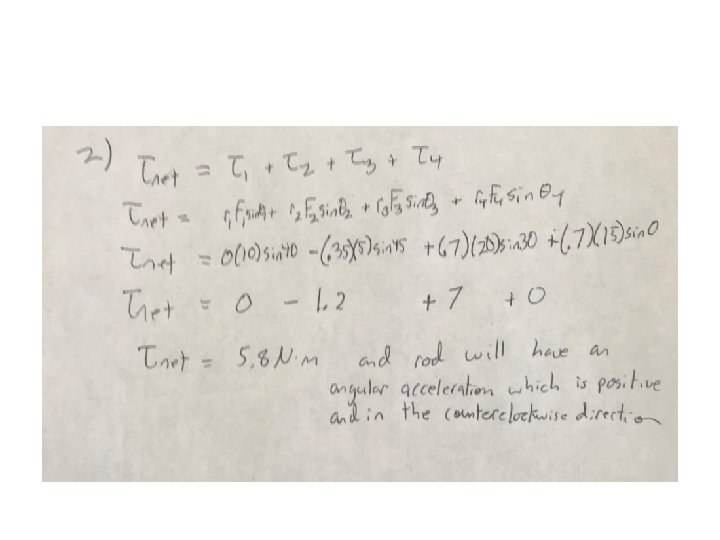 2) τnet = τ1 + τ2 + τ3 + τ4
τnet = r1F1sinθ1 + r2F2sinθ2 + r3F3sinθ3 + r4F4sinθ4
τnet = 0(10)sin40 -(.35)(5)sin45 +(.7)(20)sin30 +(.7)(15)sin0
τnet = 0 - 1.2 + 7 + 0
τnet = 5.8 N·m and rod will have an
angular acceleration which is positive
and in the counterclockwise direction